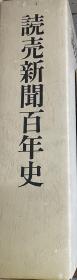 読売新聞百年史